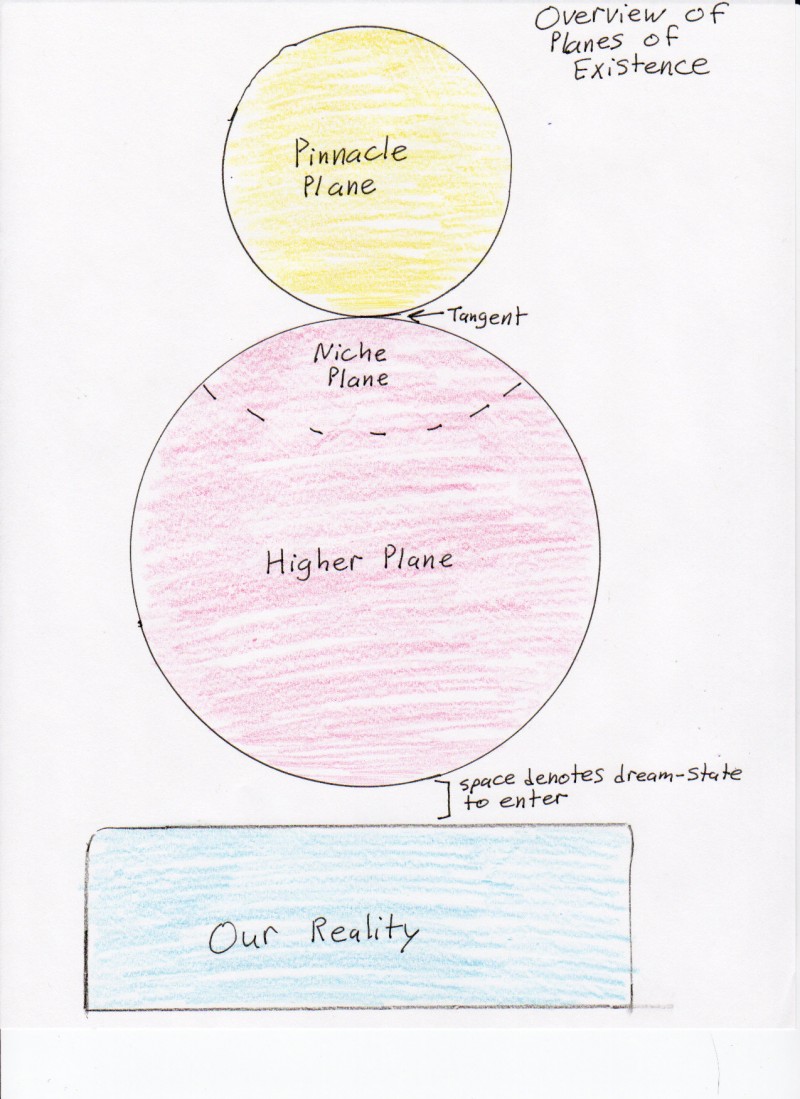 Overview of
Planes of
Existence
Pinnacle
Plane
Tangent
Niche
Plane
Higher Plane
space denotes dream-state
to enter
Our Reality